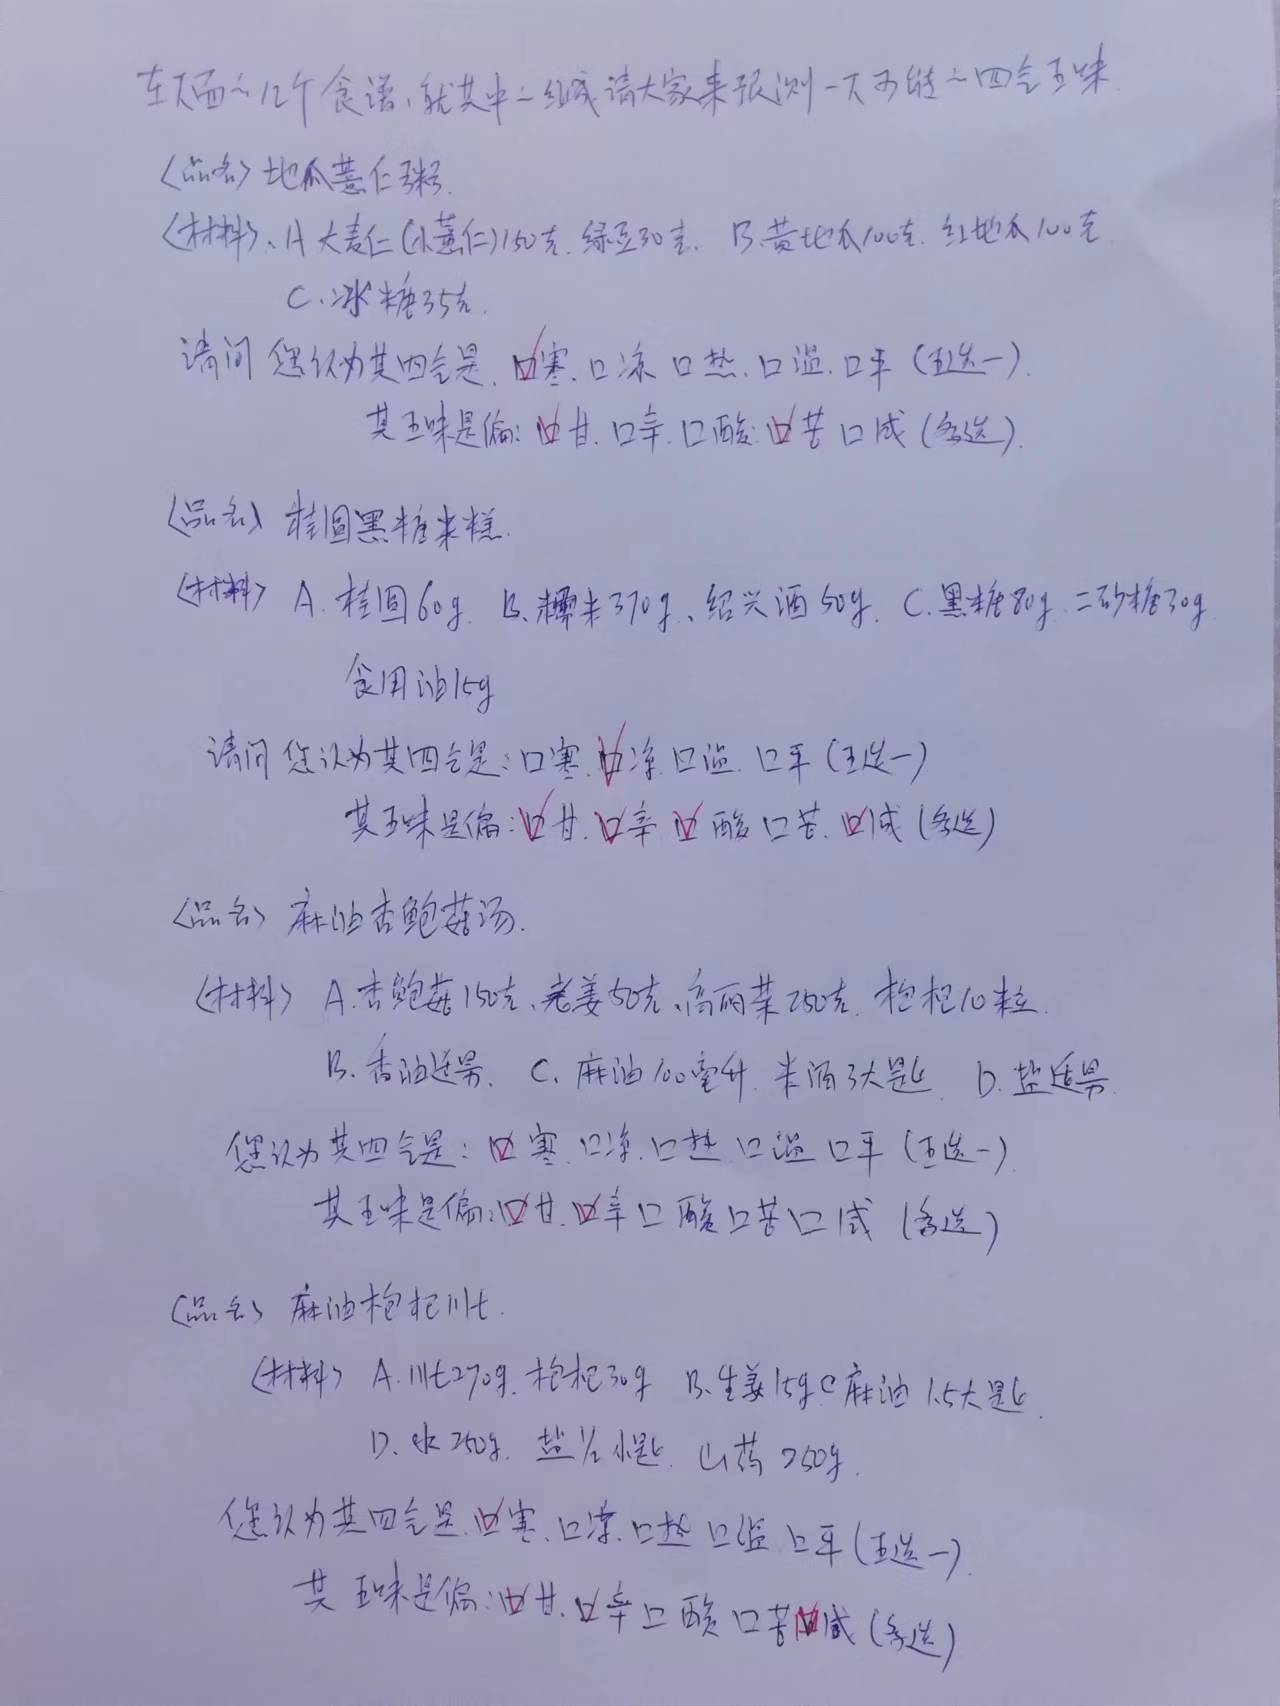 在下面~12个食谱,就其中~组成请大家来预测一下可能~四气五味.
<品名>地瓜薏仁粥.
<材料>、A 大麦仁(小薏仁)150克.绿豆30克. B.黄地瓜100克.红地瓜100克
C.冰糖35克.
请问您认为其四气是.☑寒.口凉 口热.口温.口平(五选一).
其五味是偏:☑甘.口辛.口酸.☑苦 口咸(多选).
<品名> 桂圆黑糖米糕.
<材料> A.桂圆60g. B.糯米370g、绍兴酒50g. C.黑糖80g.二砂糖30g
食用油15g
请问您认为其四气是:口寒.☑凉.口温.口平(五选一)
其五味是偏:☑甘.☑辛 ☑酸 口苦.☑咸(多选)
<品名> 麻油杏鲍菇汤.
<材料> A.杏鲍菇150克、老姜50克、高丽菜250克. 枸杞10粒.
B.香油适男. C.麻油100毫升. 米酒3大匙 D.盐适男.
您认为其四气是:☑寒.口凉.口热 口温 口平(五选一).
其五味是偏:☑甘.☑辛 口酸 口苦 口咸(多选)
<品名> 麻油枸杞川七.
<材料> A.川七270g.枸杞30g B.生姜15g C麻油1.5大匙.
D.水250g. 盐½小匙. 山药250g.
您认为其四气是.☑寒.口凉.口热 口温.口平(五选一).
其五味是偏:☑甘.☑辛 口酸 口苦☑咸(多选)